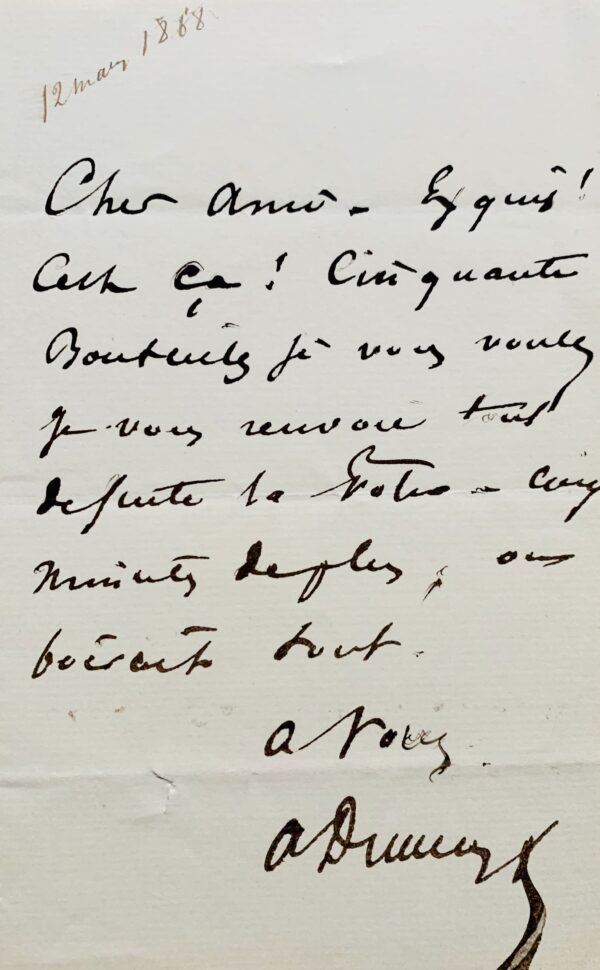 12 mars 1868
Cher ami - Exquis!
C'est ça! Cinquante
Bouteilles si vous voulez
Je vous renvoie tout
de suite la Vôtre - cinq
minutes de plus, on
boirait tout.
a Vous
A Dumas